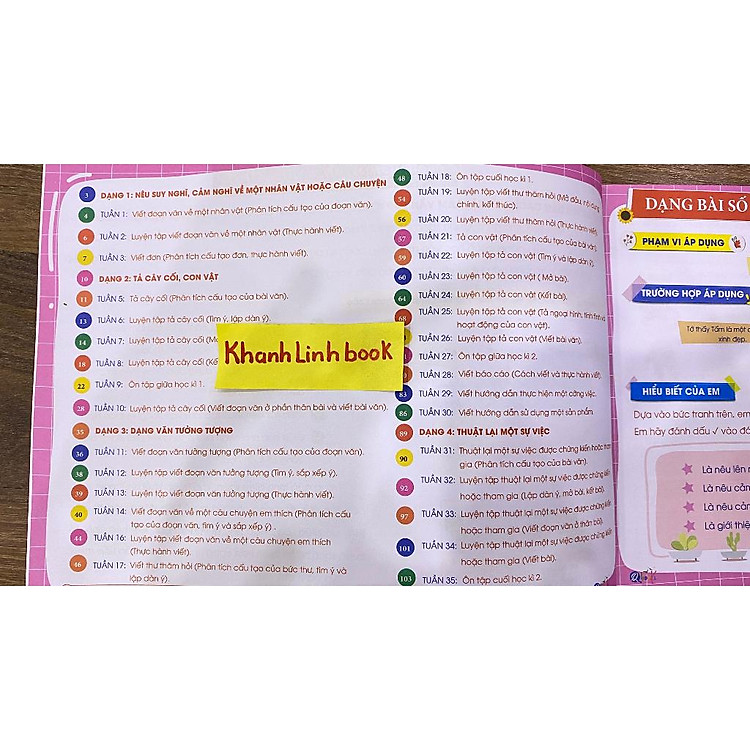 3 DẠNG 1: NÊU SUY NGHĨ, CẢM NGHĨ VỀ MỘT NHÂN VẬT HOẶC CÂU CHUYỆN
4 TUẦN 1: Viết đoạn văn về một nhân vật (Phân tích cấu tạo của đoạn văn).
6 TUẦN 2: Luyện tập viết đoạn văn về một nhân vật (Thực hành viết).
7 TUẦN 3: Viết đơn (Phân tích cấu tạo đơn, thực hành viết).
10 DẠNG 2: TẢ CÂY CỐI, CON VẬT
11 TUẦN 5: Tả cây cối (Phân tích cấu tạo của bài văn).
13 TUẦN 6: Luyện tập tả cây cối (Tìm ý, lập dàn ý).
14 TUẦN 7: Luyện tập tả cây cối
18 TUẦN 8: Luyện tập tả cây cối
22 TUẦN 9: Ôn tập giữa học kì 1.
28 TUẦN 10: Luyện tập tả cây cối (Viết đoạn văn ở phần thân bài và viết bài văn).
35 DẠNG 3: DẠNG VĂN TƯỞNG TƯỢNG
36 TUẦN 11: Viết đoạn văn tưởng tượng (Phân tích cấu tạo của đoạn văn).
38 TUẦN 12: Luyện tập viết đoạn văn tưởng tượng (Tìm ý, sắp xếp ý).
39 TUẦN 13: Luyện tập viết đoạn văn tưởng tượng (Thực hành viết).
40 TUẦN 14: Viết đoạn văn về một câu chuyện em thích (Phân tích cấu
tạo của đoạn văn, tìm ý và sắp xếp ý) .
44 TUẦN 16: Luyện tập viết đoạn văn về một câu chuyện em thích
(Thực hành viết).
46 TUẦN 17: Viết thư thăm hỏi (Phân tích cấu tạo của bức thư, tìm ý và
lập dàn ý)
Khanh Linh book
48 TUẦN 18: Ôn tập cuối học kì 1.
54 TUẦN 19: Luyện tập viết thư thăm hỏi (Mở đầu, nội dung
chính, kết thúc).
56 TUẦN 20: Luyện tập viết thư thăm hỏi (Thực hành viết).
57 TUẦN 21: Tả con vật (Phân tích cấu tạo của bài văn).
59 TUẦN 22: Luyện tập tả con vật (Tìm ý và lập dàn ý).
60 TUẦN 23: Luyện tập tả con vật ( Mở bài).
64 TUẦN 24: Luyện tập tả con vật (Kết bài).
68 TUẦN 25: Luyện tập tả con vật (Tả ngoại hình, tính tình và
hoạt động của con vật).
TUẦN 26: Luyện tập tả con vật (Viết bài văn).
TUẦN 27: Ôn tập giữa học kì 2.
TUẦN 28: Viết báo cáo (Cách viết và thực hành viết).
83 TUẦN 29: Viết hướng dẫn thực hiện một công việc.
86 TUẦN 30: Viết hướng dẫn sử dụng một sản phẩm
89 DẠNG 4: THUẬT LẠI MỘT SỰ VIỆC
90 TUẦN 31: Thuật lại một sự việc được chứng kiến hoặc tham
gia (Phân tích cấu tạo của bài văn).
92 TUẦN 32: Luyện tập thuật lại một sự việc được chứng kiến
hoặc tham gia (Lập dàn ý, mở bài, kết bài).
97 TUẦN 33: Luyện tập thuật lại một sự việc được chứng kiến
hoặc tham gia (Viết đoạn văn ở thân bài).
101 TUẦN 34: Luyện tập thuật lại một sự việc được chứng kiến
hoặc tham gia (Viết bài).
103 TUẦN 35: Ôn tập cuối học kì 2.
DẠNG BÀI SỐ
PHẠM VI ÁP DỤNG
TRƯỜNG HỢP ÁP DỤNG
Tớ thấy Tấm là một
xinh đẹp.
HIỂU BIẾT CỦA EM
Dựa vào bức tranh trên, em
Em hãy đánh dấu ✓ vào
Là nêu lên
Là nêu cảm
Là nêu cảm
Là giới thiệ